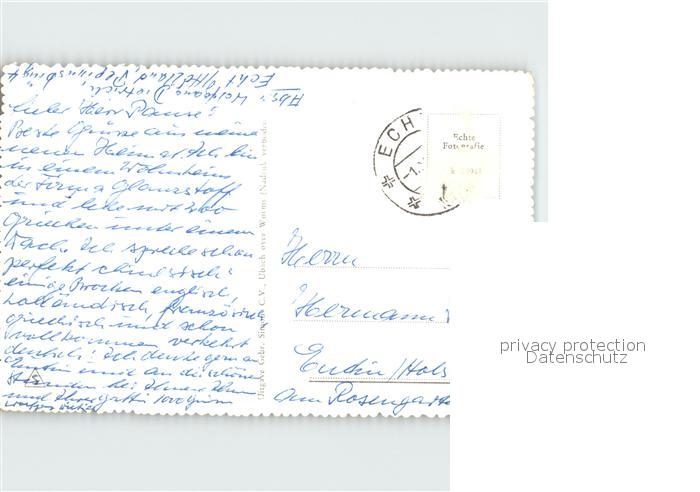 Abs: Wolfgang Dietrich,
Echt / Holland,
Lieber Herr Pause!
Beste Grüsse aus meiner
neuen Heimat. Ich bin
in einem Wohnheim
der Firma Glanzstoff
und lebe mit 200
Griechen unter einem
Dach. Ich spreche schon
perfekt chinesisch:
einige Brocken englisch,
holländisch, französisch,
griechisch und schon
vollkommen verkehrt
deutsch! Ich denke gern an
Eutin und an die schönen
Stunden bei Ihnen. Ihnen
und Ihrer Gattin
Uitgave Gebr. Simons C.V., Ubach over Worms (Nadruk verboden)
ECH
Echte
Fotografie
Herrn
Hermann
Eutin/Hols
Am Rosengarte
privacy protection
Datenschutz